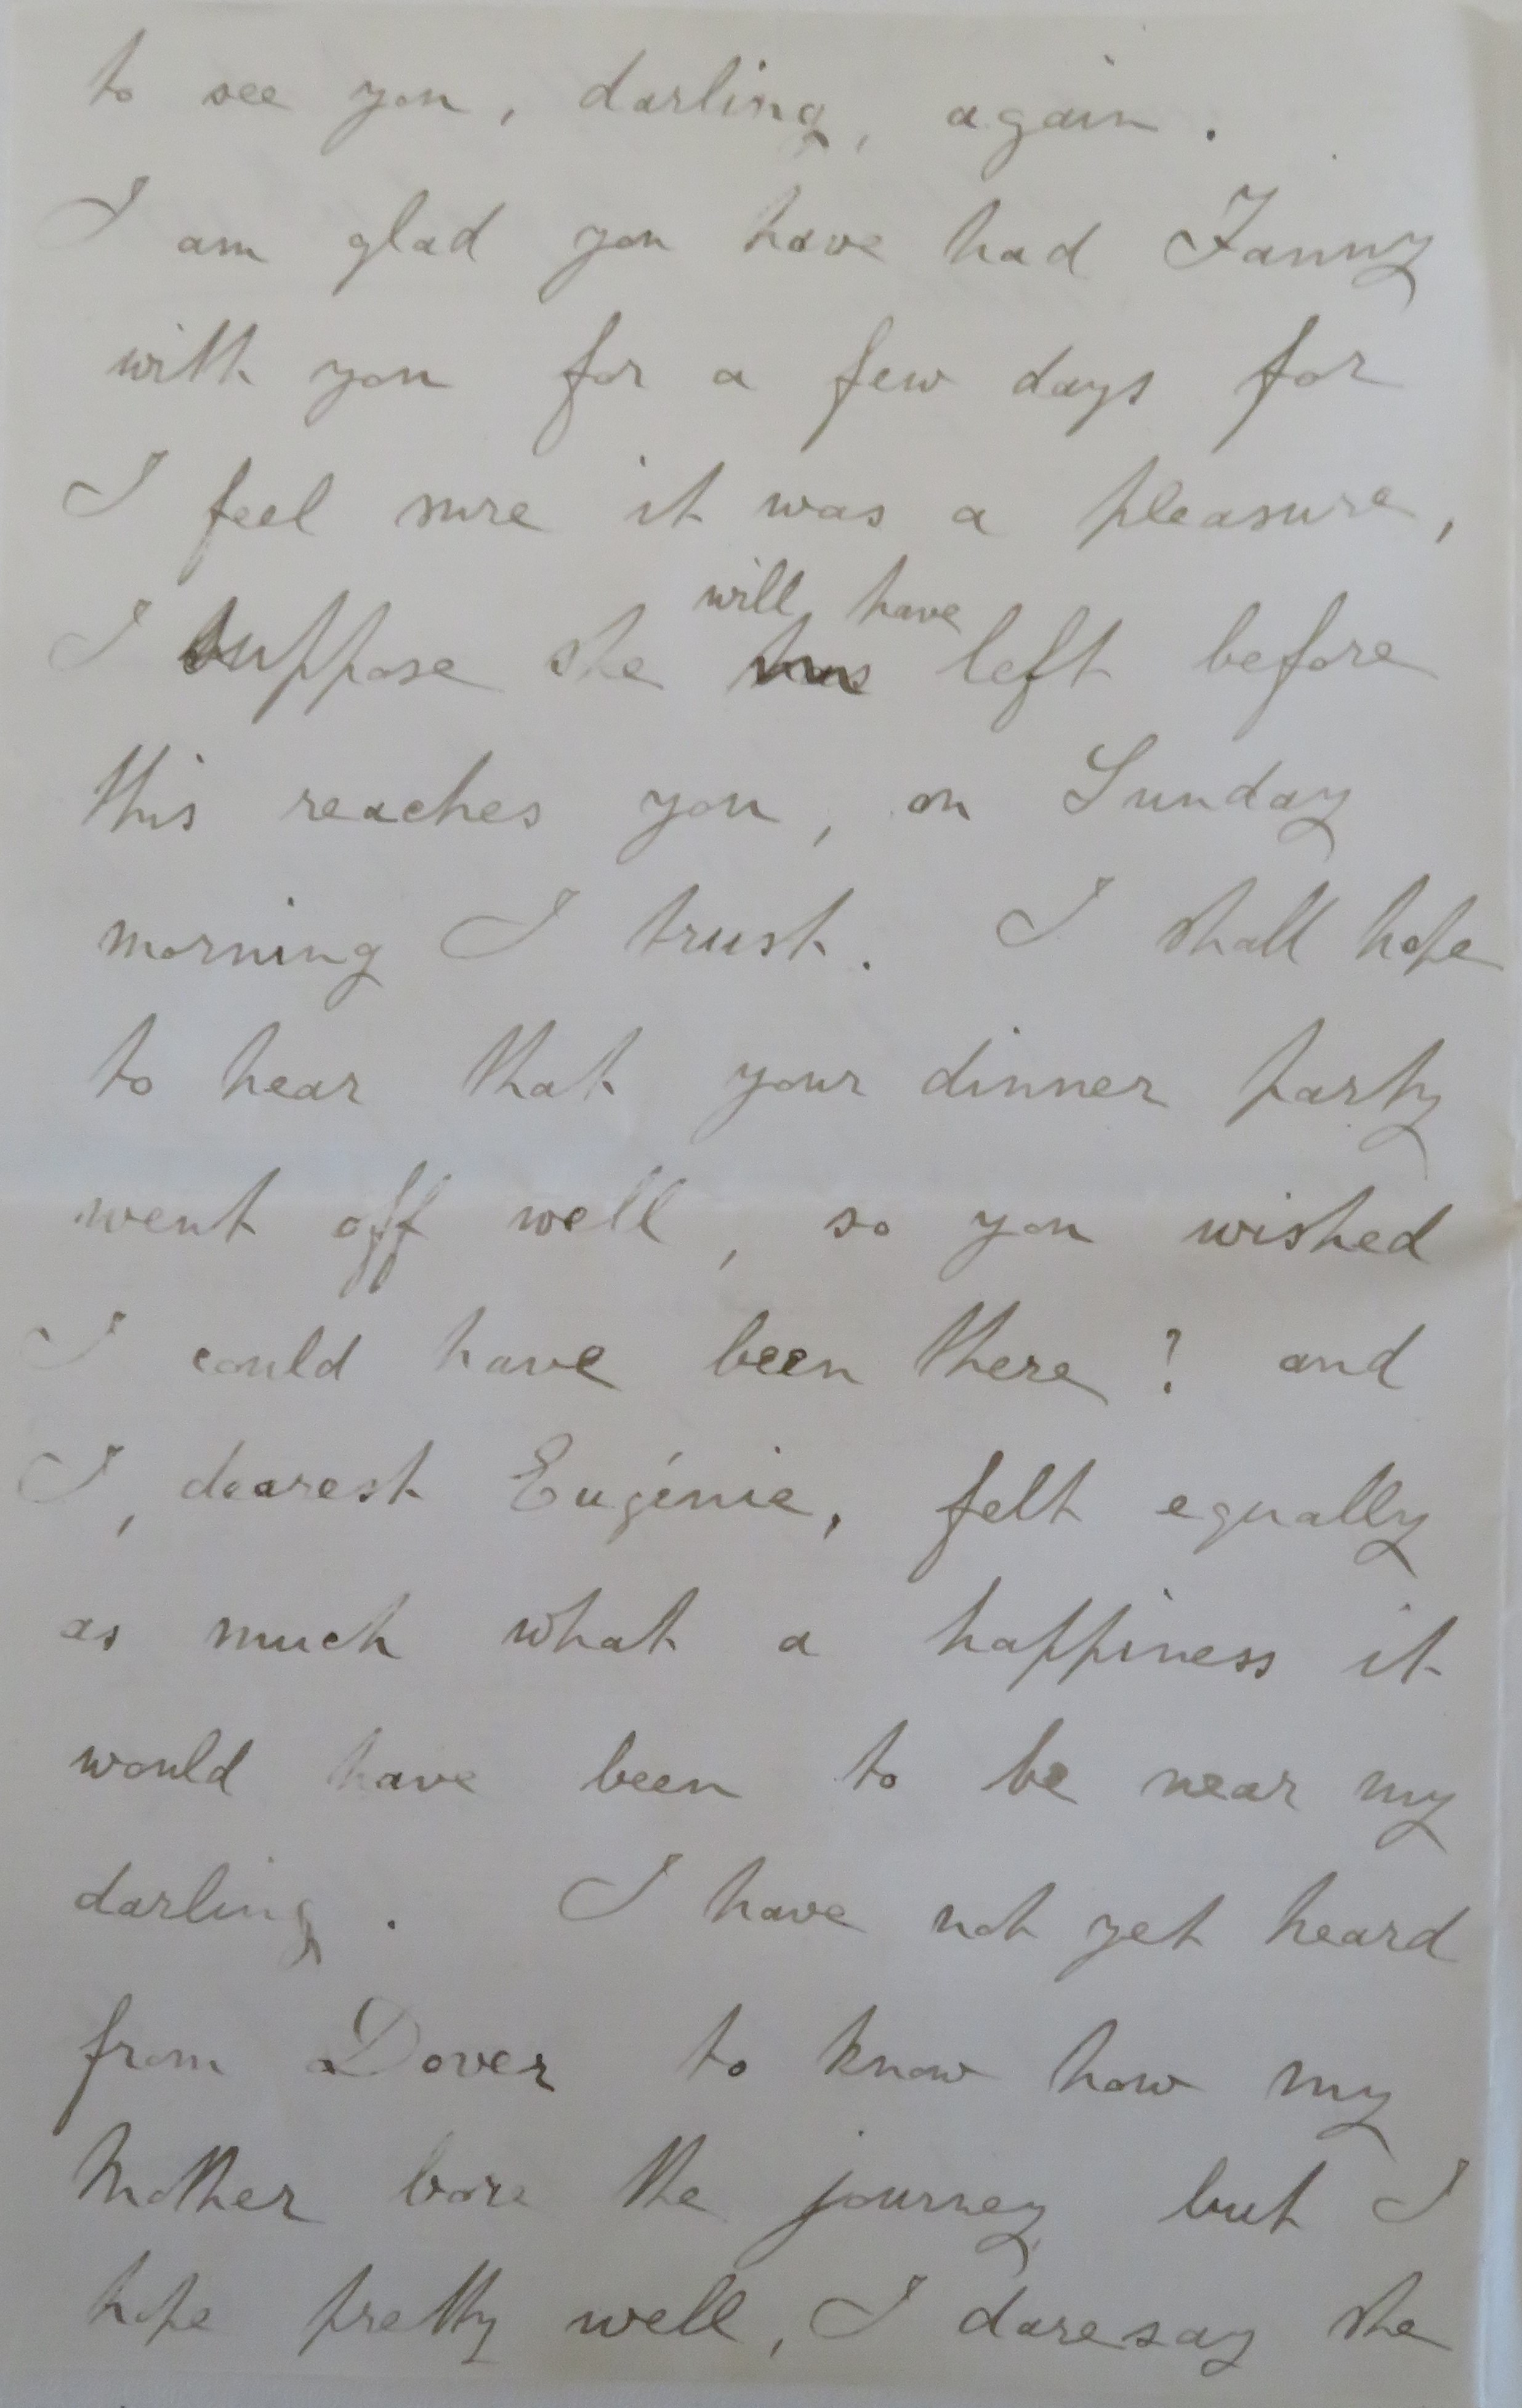 to see you, darling, again.
I am glad you have had Fanny
with you for a few days for
I feel sure it was a pleasure,
will have
I suppose she has left before
this reaches you, on Sunday
morning I trust. I shall hope
to hear that your dinner party
went off well, so you wished
I could have been there? and
I, dearest Eugénie, felt equally
as much what a happiness it
would have been to be near my
darling. I have not yet heard
from Dover to know how my
Mother bore the journey but I
hope pretty well, I daresay she